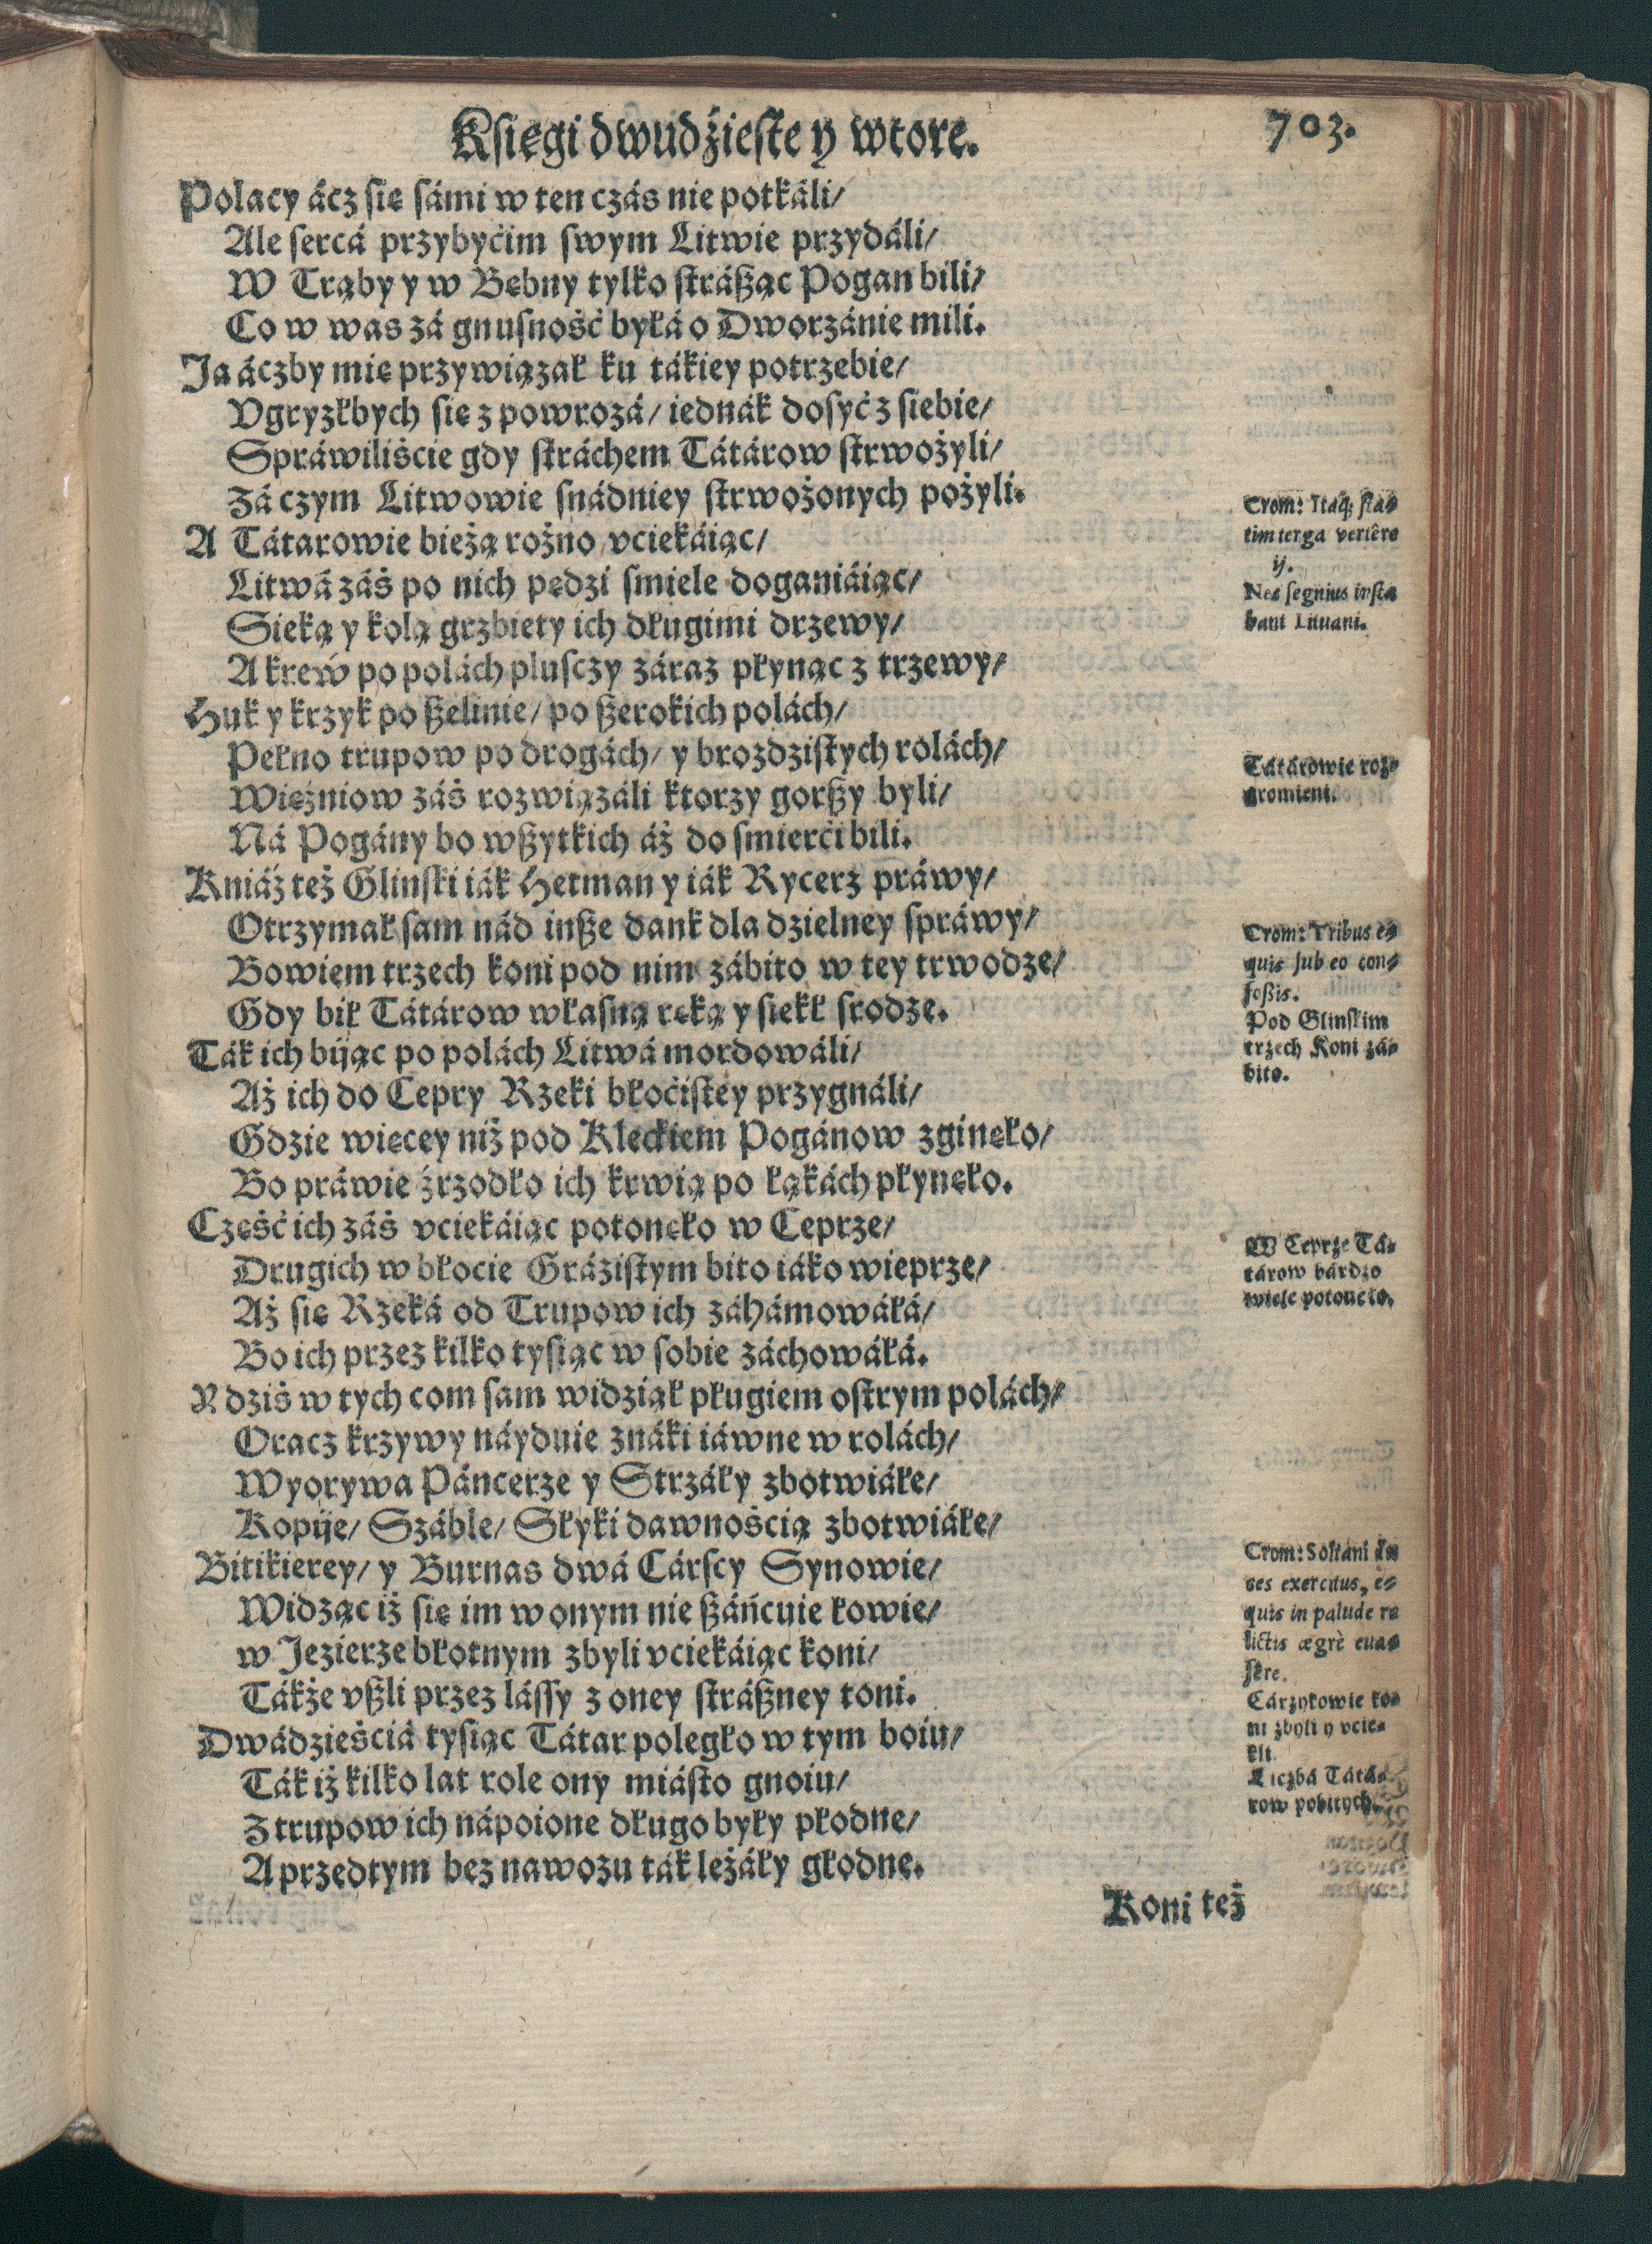 Księgi dwudźieste y wtore.
703.
Polacy ácz się sámi w ten czás nie potkáli/
Ale sercá przybyćim swym Litwie przydáli/
W Trąby y w Bębny tylko strásząc Pogan bili/
Co w was zá gnusność byłá o Dworzánie mili.
Ja áczby mię przywiązał ku tákiey potrzebie/
Vgryzłbych się z powrozá/ iednák dosyć z siebie/
Spráwiliście gdy stráchem Tátárow strwożyli/
Zá czym Litwowie snádniey strwożonych pożyli.
A Tátarowie bieżą rożno vciekáiąc/
Litwá záś po nich pędzi smiele doganiáiąc/
Sieką y kolą grzbiety ich długimi drzewy/
A krew po polách plusczy záraz płynąc z trzewy/
Huk y krzyk po szelinie/ po szerokich polách/
Pełno trupow po drogách/ y brozdzistych rolách/
Więźniow záś rozwiązáli ktorzy gorszy byli/
Ná Pogány bo wszytkich áż do smierći bili.
Kniáź też Glinski iák Hetman y iák Rycerz práwy/
Otrzymał sam nád insze dank dla dzielney spráwy/
Bowiem trzech koni pod nim zábito w tey trwodze/
Gdy bił Tátárow własną ręką y siekł srodze.
Ták ich bijąc po polách Litwá mordowáli/
Aż ich do Cepry Rzeki błoćistey przygnáli/
Gdzie więcey niż pod Kleckiem Pogánow zginęło/
Bo práwie źrzodło ich krwią po łąkách płynęło.
Część ich záś vciekáiąc potonęło w Ceprze/
Drugich w błocie Grázistym bito iáko wieprze/
Aż się Rzeká od Trupow ich záhámowáłá/
Bo ich przez kilko tysiąc w sobie záchowáłá.
Y dziś w tych com sam widział pługiem ostrym polách/
Oracz krzywy náyduie znáki iáwne w rolách/
Wyorywa Páncerze y Strzáły zbotwiáłe/
Kopije/ Száble/ Słyki dawnością zbotwiáłe/
Bitikierey/ y Burnas dwá Cárscy Synowie/
Widząc iż się im w onym nie száńcuie łowie/
w Jezierze błotnym zbyli vciekáiąc koni/
Tákże vszli przez lássy z oney strászney toni.
Dwádzieściá tysiąc Tátar poległo w tym boiu/
Ták iż kilko lat role ony miásto gnoiu/
Z trupow ich nápoione długo były płodne/
A przedtym bez nawozu ták leżáły głodne.
Koni też
Crom: Itáq; sta-
tim terga vertêre
ij.
Nec segnius insta
bant Lituani.
Tátárowie roz-
gromieni.
Crom: Tribus e-
quis sub eo con-
fossis.
Pod Glinskim
trzech Koni zá-
bito.
W Ceprze Tá-
tárow bárdzo
wiele potonęło.
Crom: Soltani du
ces exercitus, e-
quis in palude re
lictis ægrè eua-
sêre.
Cárzykowie ko-
ni zbyli y vcie-
kli.
Liczbá Tátá-
row pobitych.